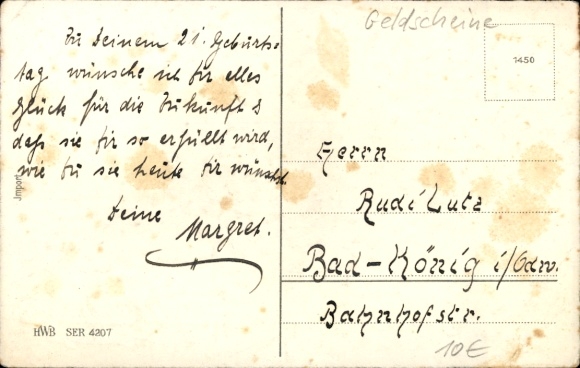 Geldscheine
1450
Zu Deinem 21. Geburts=
tag wünsche ich Dir alles
Glück für die Zukunft &
daß sie Dir so erfüllt wird,
wie Du sie heute Dir wünschst.
Deine
Margret.
Jmport
HWB SER 4207
Herrn
Rudi Lutz
Bad-König i/Odw.
Bahnhofstr.
10€